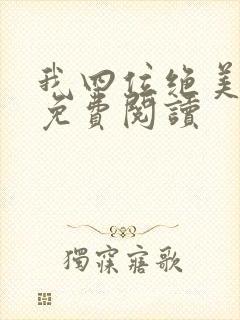 我四位绝美
免費閱讀
獨寐寤歌